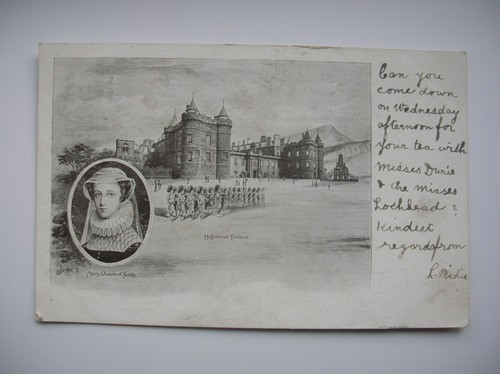 Can you
come down
on Wednesday
afternoon for
your tea with
Misses Durie
& the misses
Lochhead?
Kindest
regards from
L.
Holyrood Palace
Mary Queen of Scots